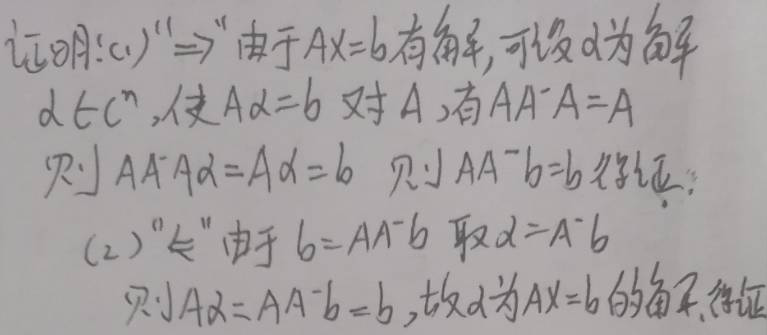 证明:(1)"⇒"由于AX=b有解,可设α为解
α∈Cⁿ,使Aα=b 对A,有AA⁻A=A
则AA⁻Aα=Aα=b 则AA⁻b=b得证.
(2)"⇐"由于b=AA⁻b 取α=A⁻b
则Aα=AA⁻b=b,故α为AX=b的解.得证